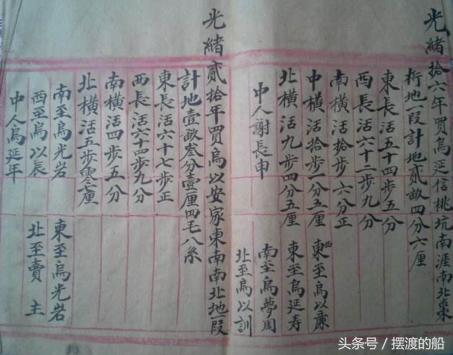 光緒拾六年買烏延信桃坑南涯南北東
桁地一段計地貳畝四分六厘
東長活五十四步五分
西長活六十一步九分
南橫活拾步六分正
中橫活拾步八分五厘
北橫活九步四分五厘
中人謝長申
東至烏以廉
東至烏延寿
南至烏夢周
北至烏以訓
光緒貳拾年買烏以安家東南南北地一段
計地壹畝叁分壹厘四毛八系
東長活六十七步正
西長活六十四步九分
南橫活四步五分
北橫活五步零厘
南至烏光岩
西至烏以辰
中人烏延年
東至烏光岩
北至賣主
头条号／摆渡的船